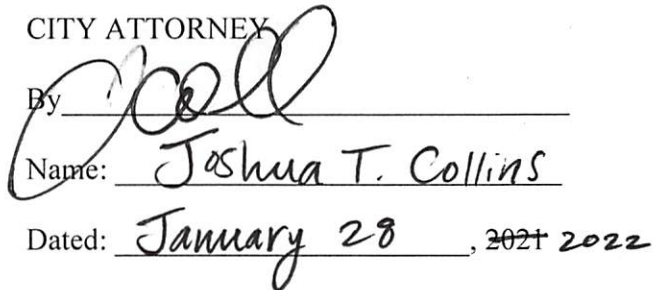 CITY ATTORNEY
By
Name: Joshua T. Collins
Dated: January 28, 2021 2022